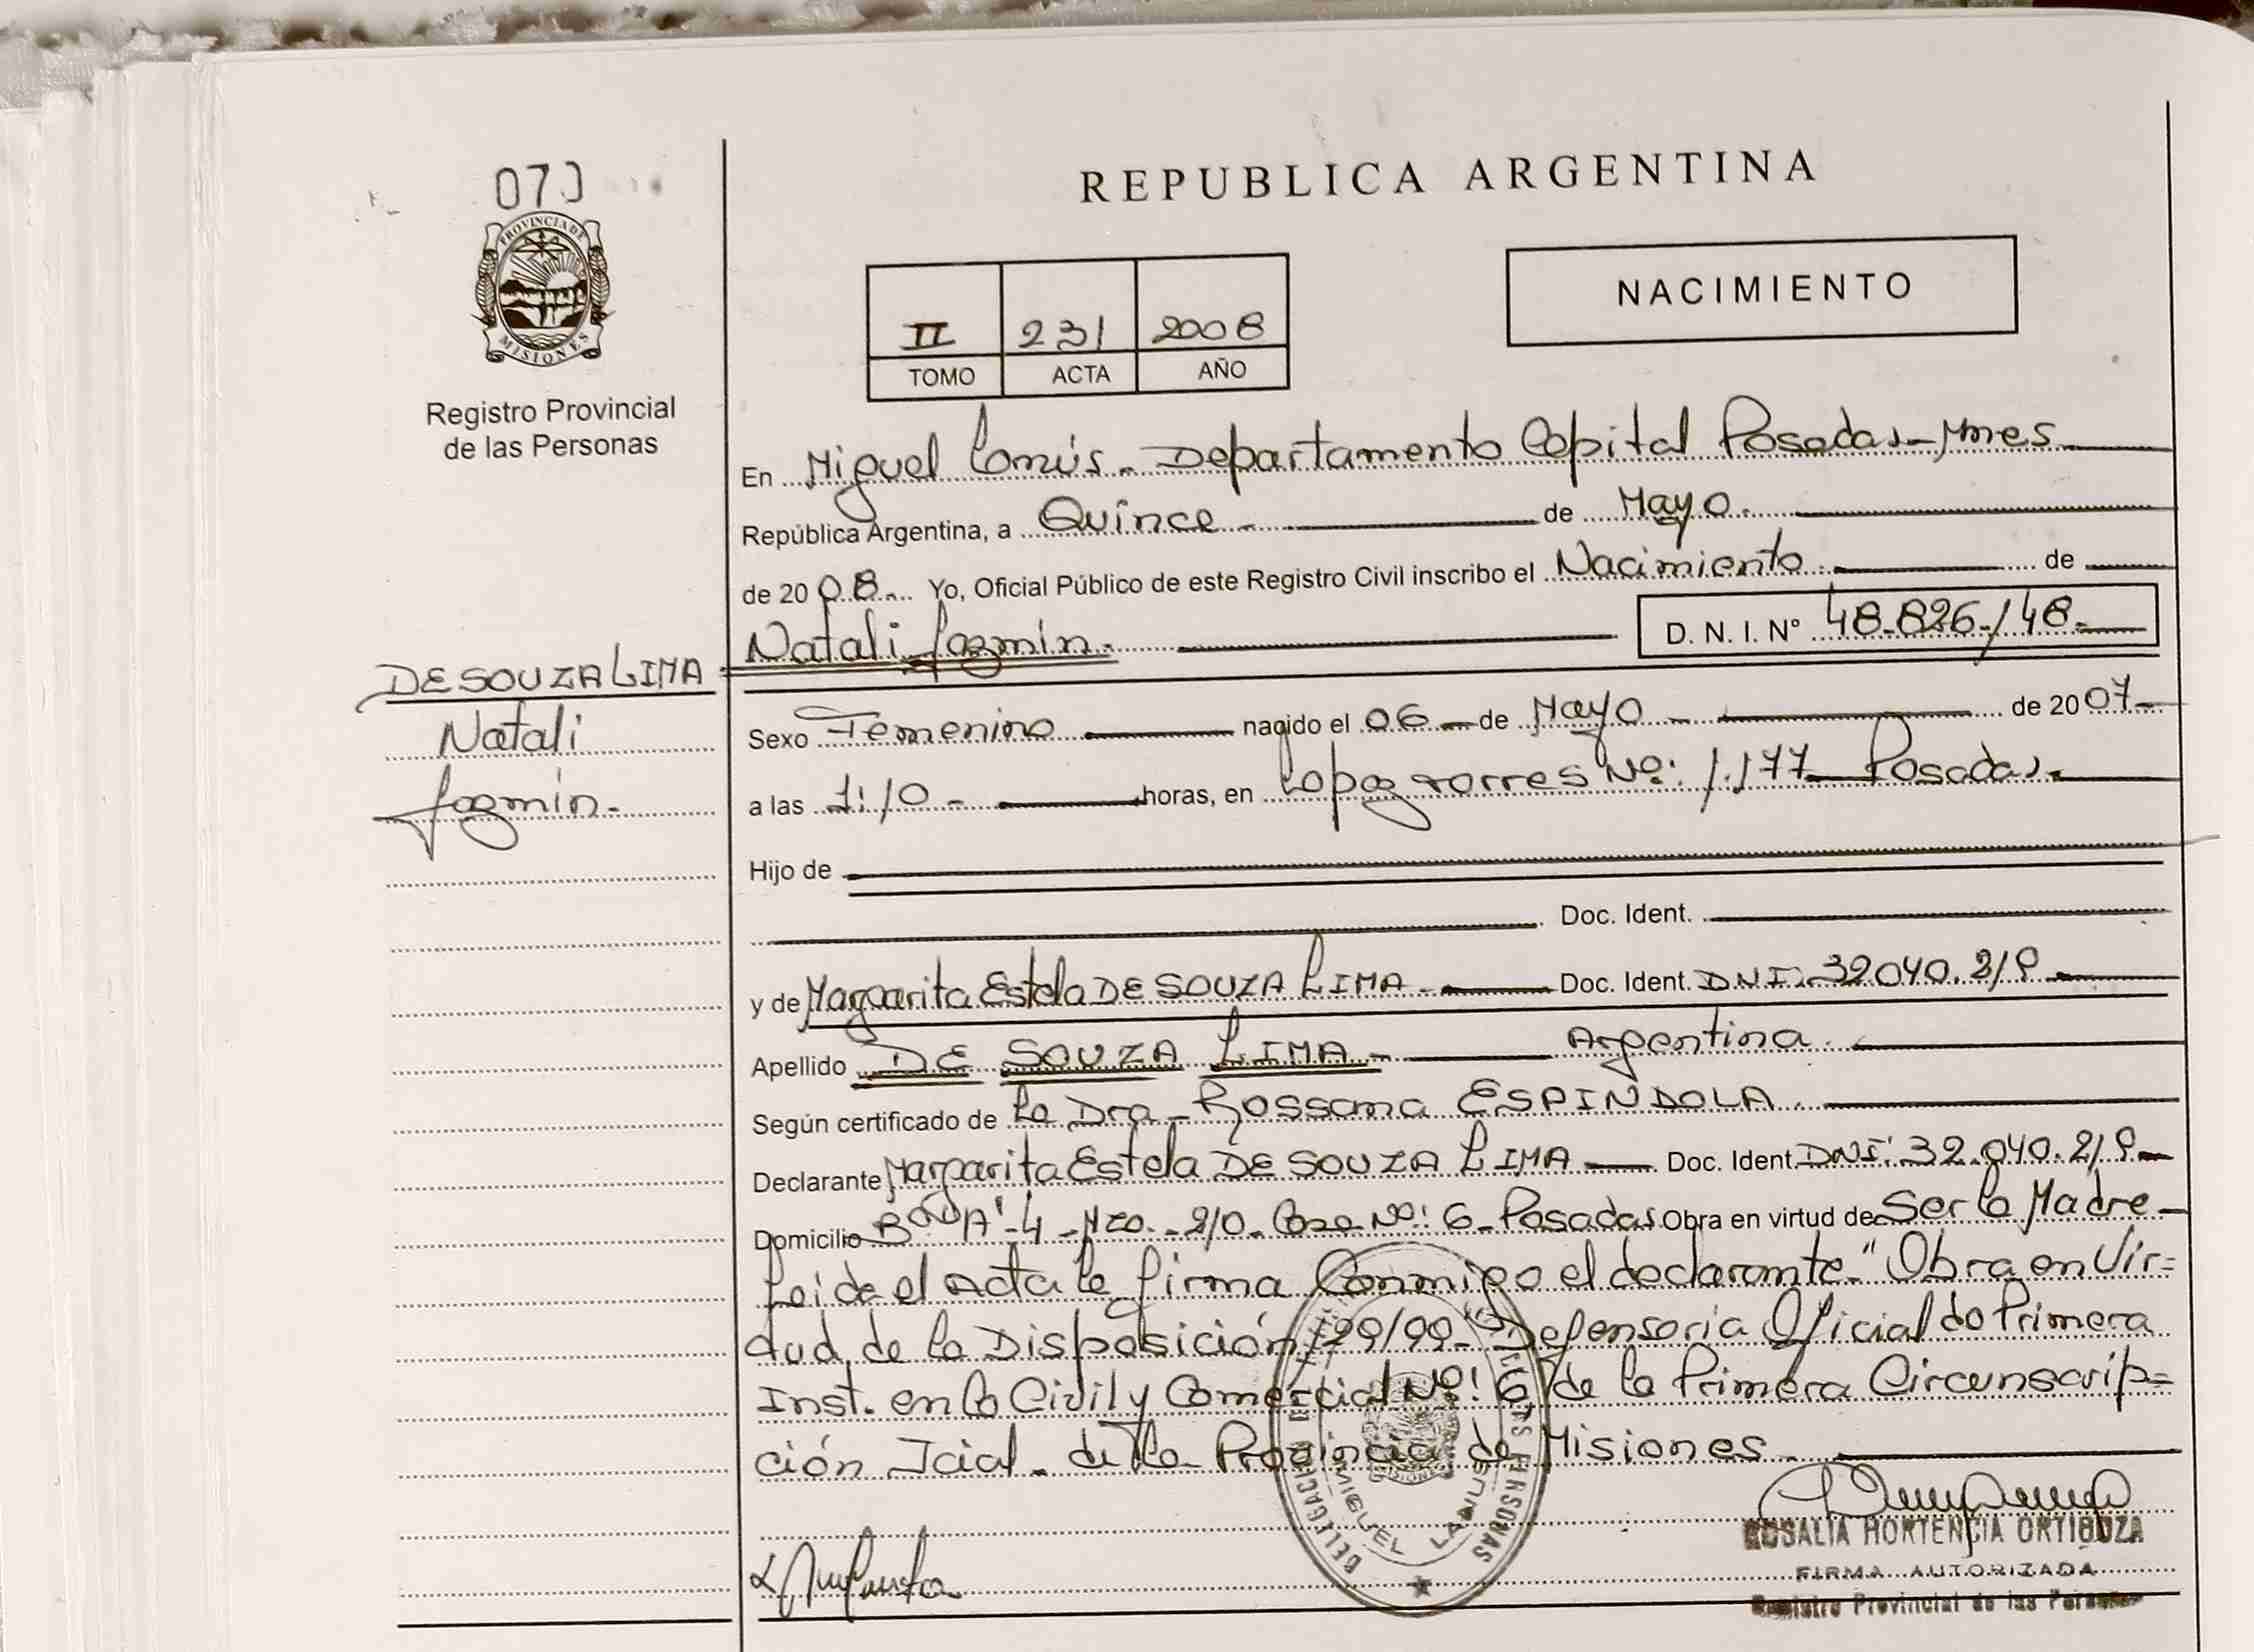 070
PROVINCIA DE
MISIONES
Registro Provincial
de las Personas
REPUBLICA ARGENTINA
II 231 2008
TOMO ACTA AÑO
NACIMIENTO
En Miguel Lanús - Departamento Capital Posadas - Mnes
República Argentina, a Quince - de Mayo -
de 2008 - Yo, Oficial Público de este Registro Civil inscribo el Nacimiento - de
Natali Jazmín - D. N. I. Nº 48.826.148 -
DE SOUZA LIMA
Natali
Jazmín -
Sexo Femenino nacido el 06 - de Mayo - de 2007 -
a las 1:10 - horas, en Lopez Torres Nº: 1.177 - Posadas -
Hijo de
Doc. Ident.
y de Margarita Estela DE SOUZA LIMA - Doc. Ident. DNI: 32.040.219 -
Apellido DE SOUZA LIMA - Argentina -
Según certificado de la Dra - Rossana ESPINDOLA -
Declarante Margarita Estela DE SOUZA LIMA - Doc. Ident. DNI: 32.040.219 -
Domicilio Bº "A"-4 - Mzo. - 210 - Casa Nº: 6 - Posadas Obra en virtud de Ser la Madre -
Leída el Acta la firma Conmigo el declarante - "Obra en Vir=
dud de la Disposición 199/99 - "Defensoria Oficial de Primera
Inst. en lo Civil y Comercial Nº: 6 de la Primera Circunscrip=
ción Jcial - de la Provincia de Misiones -
MIGUEL LANUS
ROSALIA HORTENCIA ORTIGOZA
FIRMA AUTORIZADA
Registro Provincial de las Personas